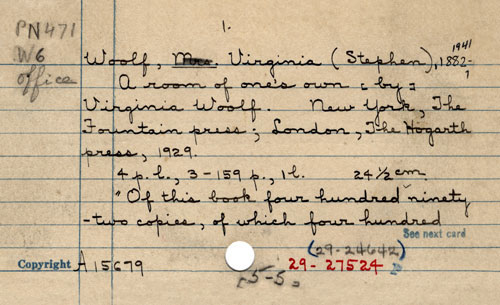 1.
PN471
W6
office
Woolf, Mrs. Virginia (Stephen), 1882-1941
A room of one's own [by]
Virginia Woolf. New York, The
Fountain press; London, The Hogarth
press, 1929.
4 p. l., 3-159 p., 1 l. 24½ cm
"Of this book four hundred ninety
-two copies, of which four hundred
See next card
(29-24642)
Copyright A 15679
29-27524
-5-5-